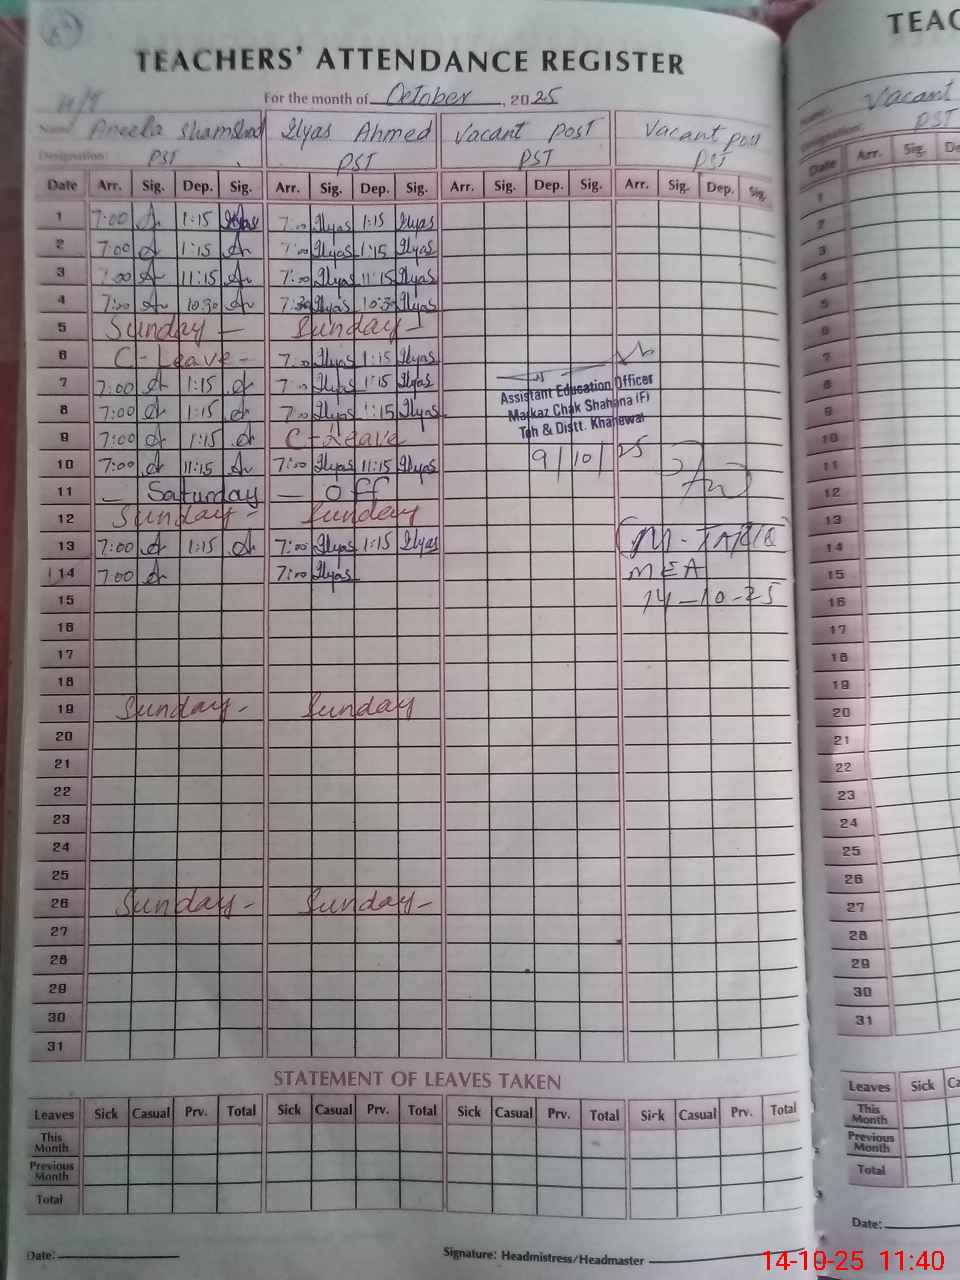 TEACHERS' ATTENDANCE REGISTER
For the month of October, 2025
H/T
Name: Aneela Shamshad Ilyas Ahmed Vacant Post Vacant post
Designation: PST PST PST PST
Date Arr. Sig. Dep. Sig. Arr. Sig. Dep. Sig. Arr. Sig. Dep. Sig. Arr. Sig. Dep. Sig.
1 7:00 1:15 Ilyas 7:00 Ilyas 1:15 Ilyas
2 7:00 1:15 7:00 Ilyas 1:15 Ilyas
3 7:00 11:15 7:00 Ilyas 11:15 Ilyas
4 7:00 10:30 7:30 Ilyas 10:30 Ilyas
5 Sunday - Sunday -
6 C-Leave - 7:00 Ilyas 1:15 Ilyas
7 7:00 1:15 7:00 Ilyas 1:15 Ilyas
8 7:00 1:15 7:00 Ilyas 1:15 Ilyas
9 7:00 1:15 C-Leave
10 7:00 11:15 7:00 Ilyas 11:15 Ilyas
11 - Saturday - off
12 Sunday - Sunday
13 7:00 1:15 7:00 Ilyas 1:15 Ilyas
14 7:00 7:00 Ilyas
15
16
17
18
19 Sunday - Sunday
20
21
22
23
24
25
26 Sunday - Sunday -
27
28
29
30
31
Assistant Education Officer
Markaz Chak Shahana (F)
Teh & Distt. Khanewal
9/10/25
(M-TARIQ)
MEA
14-10-25
STATEMENT OF LEAVES TAKEN
Leaves Sick Casual Prv. Total Sick Casual Prv. Total Sick Casual Prv. Total Sick Casual Prv. Total
This Month
Previous Month
Total
Date:
Signature: Headmistress/Headmaster
TEAC
Name: Vacant
Designation: PST
Date Arr. Sig. De
1
2
3
4
5
6
7
8
9
10
11
12
13
14
15
16
17
18
19
20
21
22
23
24
25
26
27
28
29
30
31
Leaves Sick Ca
This Month
Previous Month
Total
Date:
14-10-25 11:40